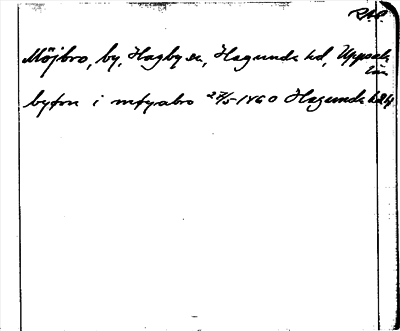 Möjbro, by, Hagby sn, Hagunda hd, Uppsala
län
byfon i møyabro 27/5 1460 Hagunda hd